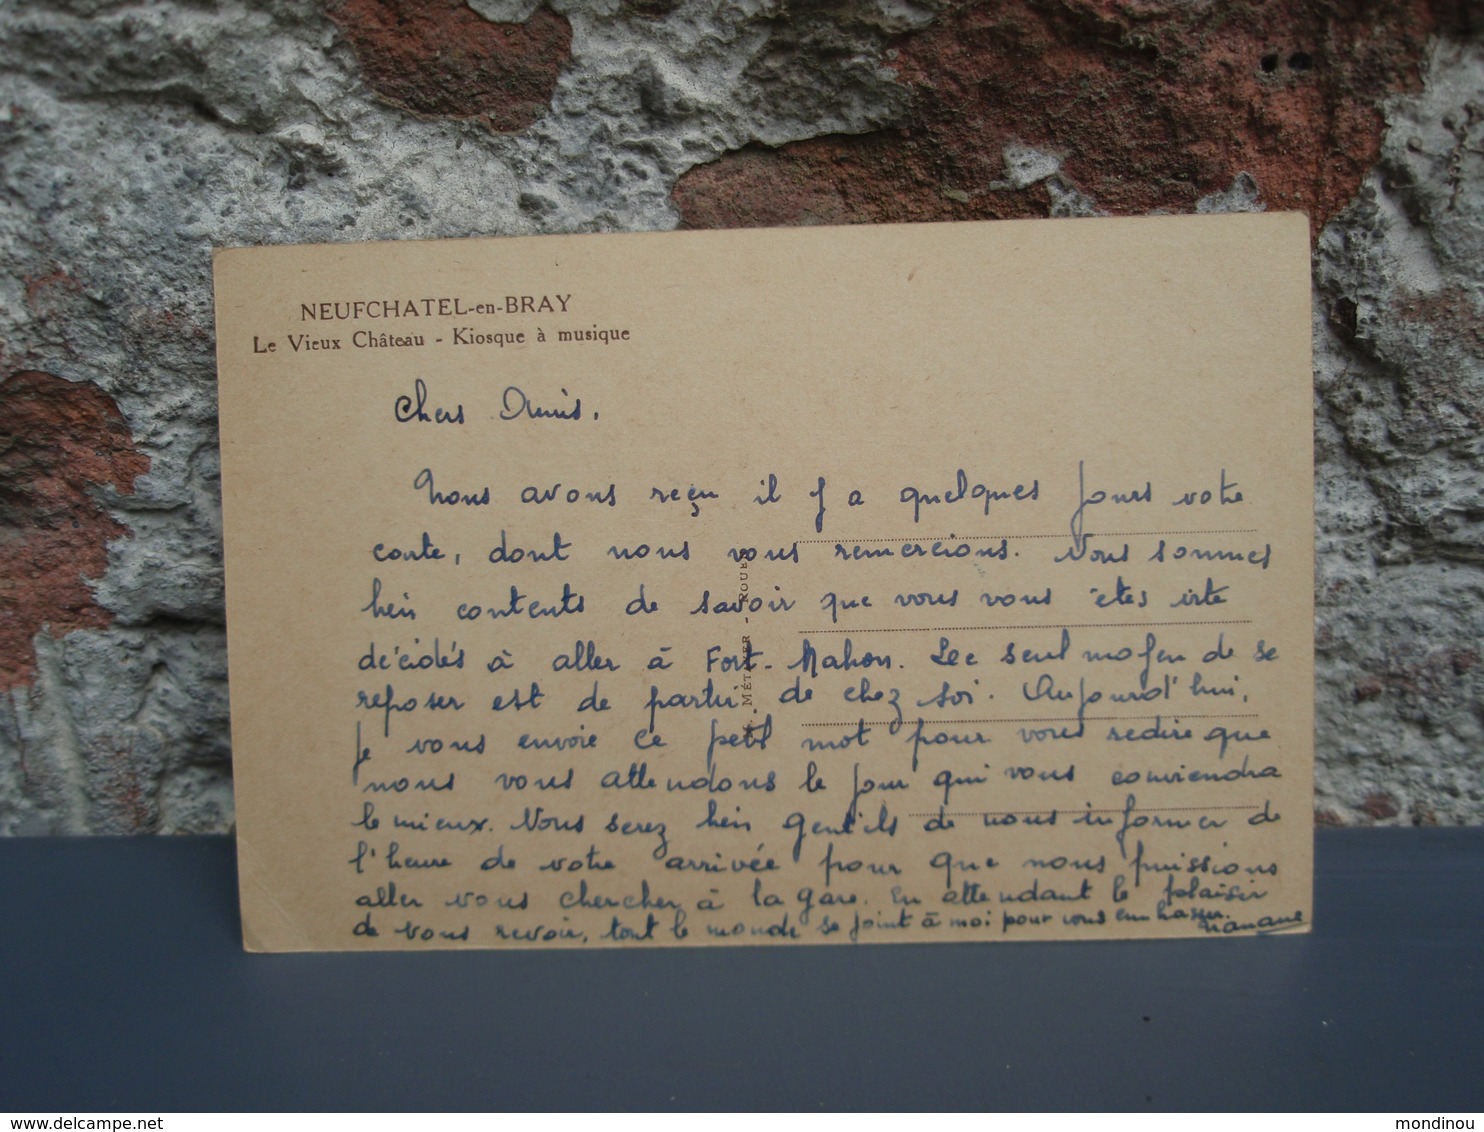 NEUFCHATEL-en-BRAY
Le Vieux Château - Kiosque à musique
Chers Amis,
Nous avons reçu il y a quelques jours votre
carte, dont nous vous remercions. Nous sommes
bien contents de savoir que vous vous êtes
décidés à aller à Fort-Mahon. Le seul moyen de se
reposer est de partir de chez soi. Aujourd'hui,
je vous envoie ce petit mot pour vous redire que
nous vous attendons le jour qui vous conviendra
le mieux. Vous serez bien gentils de nous informer de
l'heure de votre arrivée pour que nous puissions
aller vous chercher à la gare. En attendant le plaisir
de vous revoir, tout le monde se joint à moi pour vous embrasser.
MÉTAYER - ROUEN
delcampe.net
mondinou